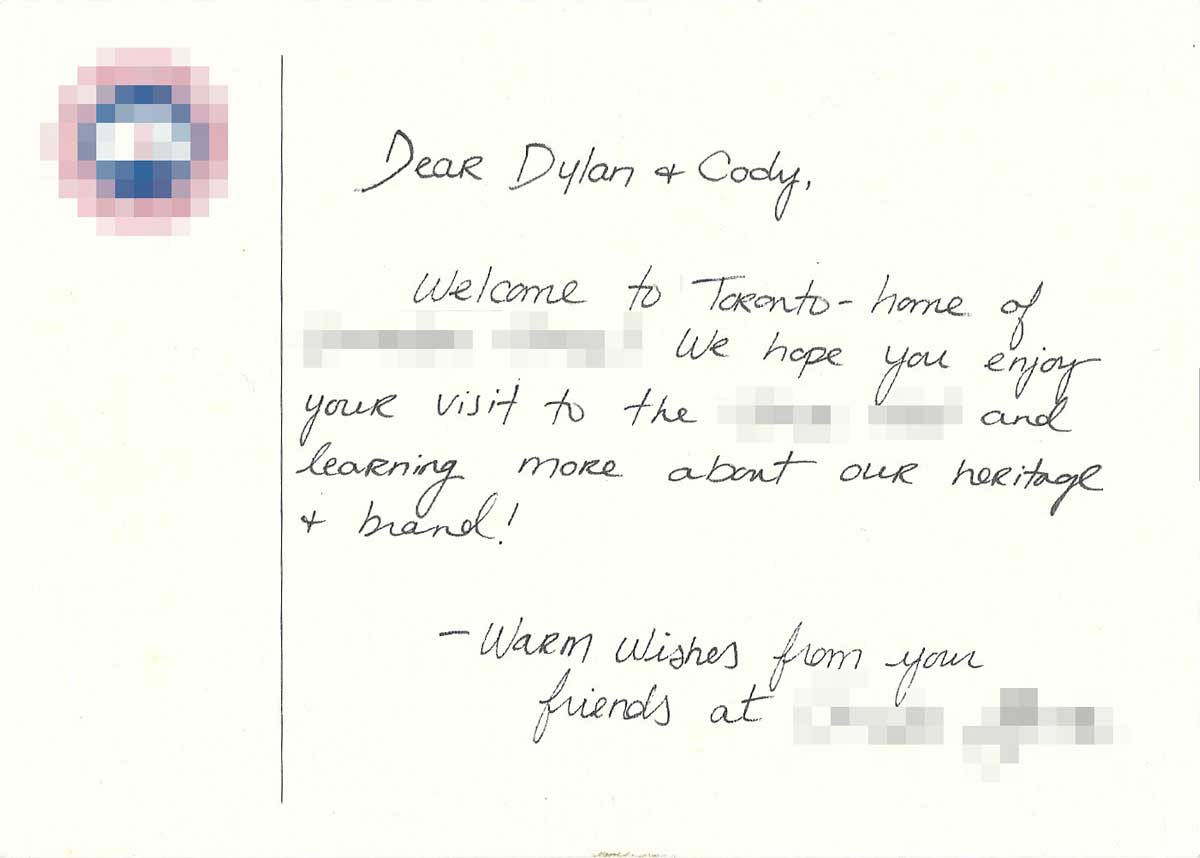 Dear Dylan & Cody,
Welcome to Toronto - home of
We hope you enjoy
your visit to the and
learning more about our heritage
& brand!
- Warm Wishes from your
friends at